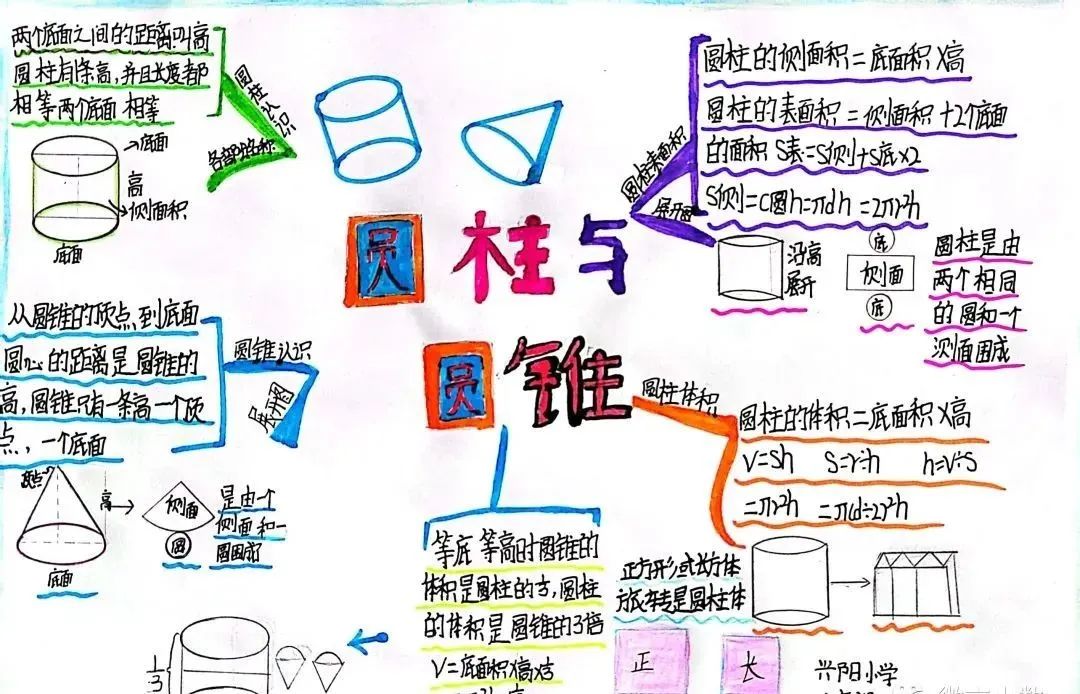 两个底面之间的距离叫高
圆柱有无数条高,并且长度都
相等两个底面相等
圆柱认识
各部名称
底面
高
侧面积
底面
圆柱与
圆锥
圆柱表面积
展开图
圆柱的侧面积=底面积×高
圆柱的表面积=侧面积+2个底面
的面积 S表=S侧+S底×2
S侧=C圆h=πdh=2πr²h
沿高
展开
底
侧面
底
圆柱是由
两个相同
的圆和一个
侧面围成
从圆锥的顶点到底面
圆心的距离是圆锥的
高,圆锥只有一条高一个顶
点,一个底面
圆锥认识
展开图
顶点
高
底面
侧面
圆
是由一个
侧面和一
圆围成
圆柱体积
圆柱的体积=底面积×高
V=Sh S=V÷h h=V÷S
=πr²h =π(d÷2)²h
等底等高时圆锥的
体积是圆柱的⅓,圆柱
的体积是圆锥的3倍
V=底面积×高×⅓
1/3
正方形或长方体
旋转是圆柱体
正
长
兴阳小学